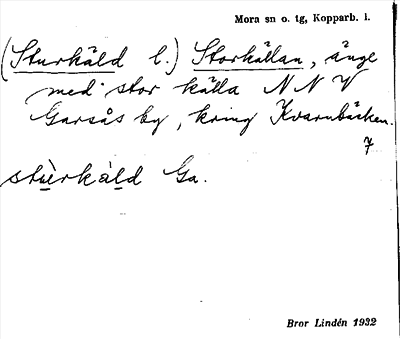 Mora sn o. tg, Kopparb. l.
(Sturkäld l.) Storkällan, änge
med stor källa N N V
Garsås by, kring Kvarnbäcken.
7
stùrkàld Ga.
Bror Lindén 1932